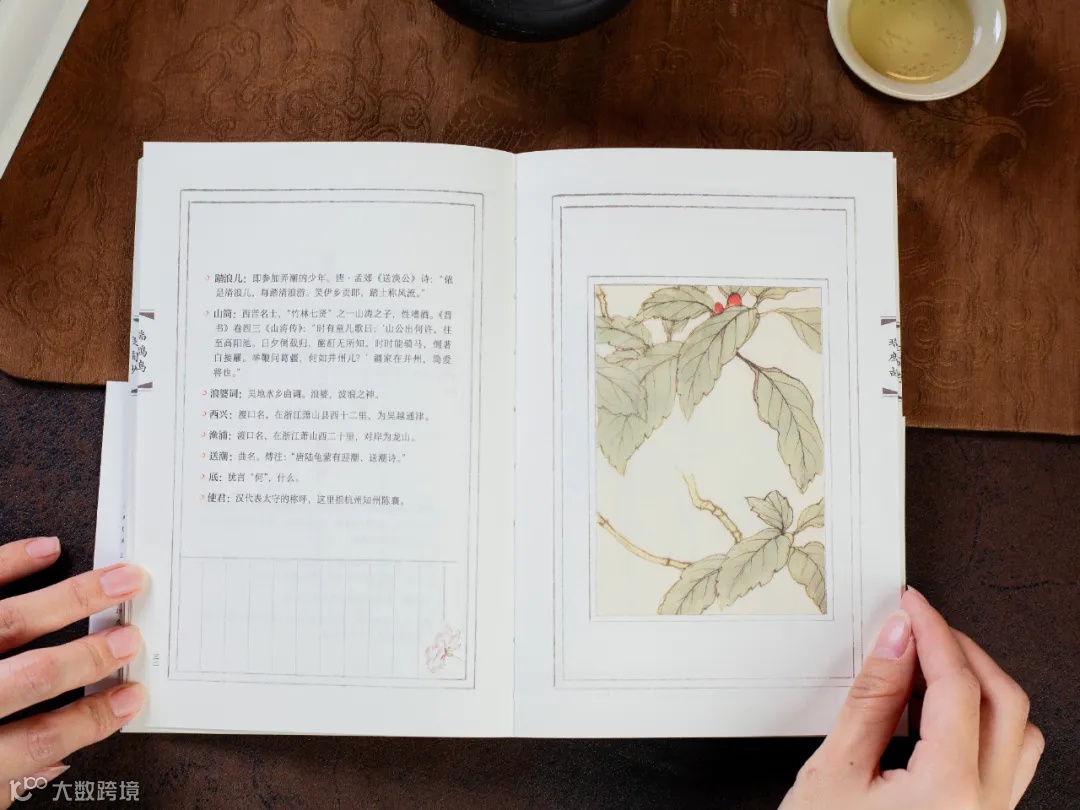 踏浪儿：即参加弄潮的少年。唐·孟郊《送淡公》诗：“侬
是清浪儿，每踏清浪游。笑伊乡贡郎，踏土称风流。”
山简：西晋名士，“竹林七贤”之一山涛之子，性嗜酒。《晋
书》卷四三《山涛传》：“时有童儿歌曰：‘山公出何许，往
至高阳池。日夕倒载归，酩酊无所知。时时能骑马，倒著
白接䍦。举鞭问葛疆，何如并州儿？’疆家在并州，简爱
将也。”
浪婆词：吴地水乡曲调。浪婆，波浪之神。
西兴：渡口名，在浙江萧山县西十二里，为吴越通津。
渔浦：渡口名，在浙江萧山西二十里，对岸为龙山。
送潮：曲名。傅注：“唐陆龟蒙有迎潮、送潮诗。”
底：犹言“何”，什么。
使君：汉代表太守的称呼，这里指杭州知州陈襄。
大数跨境